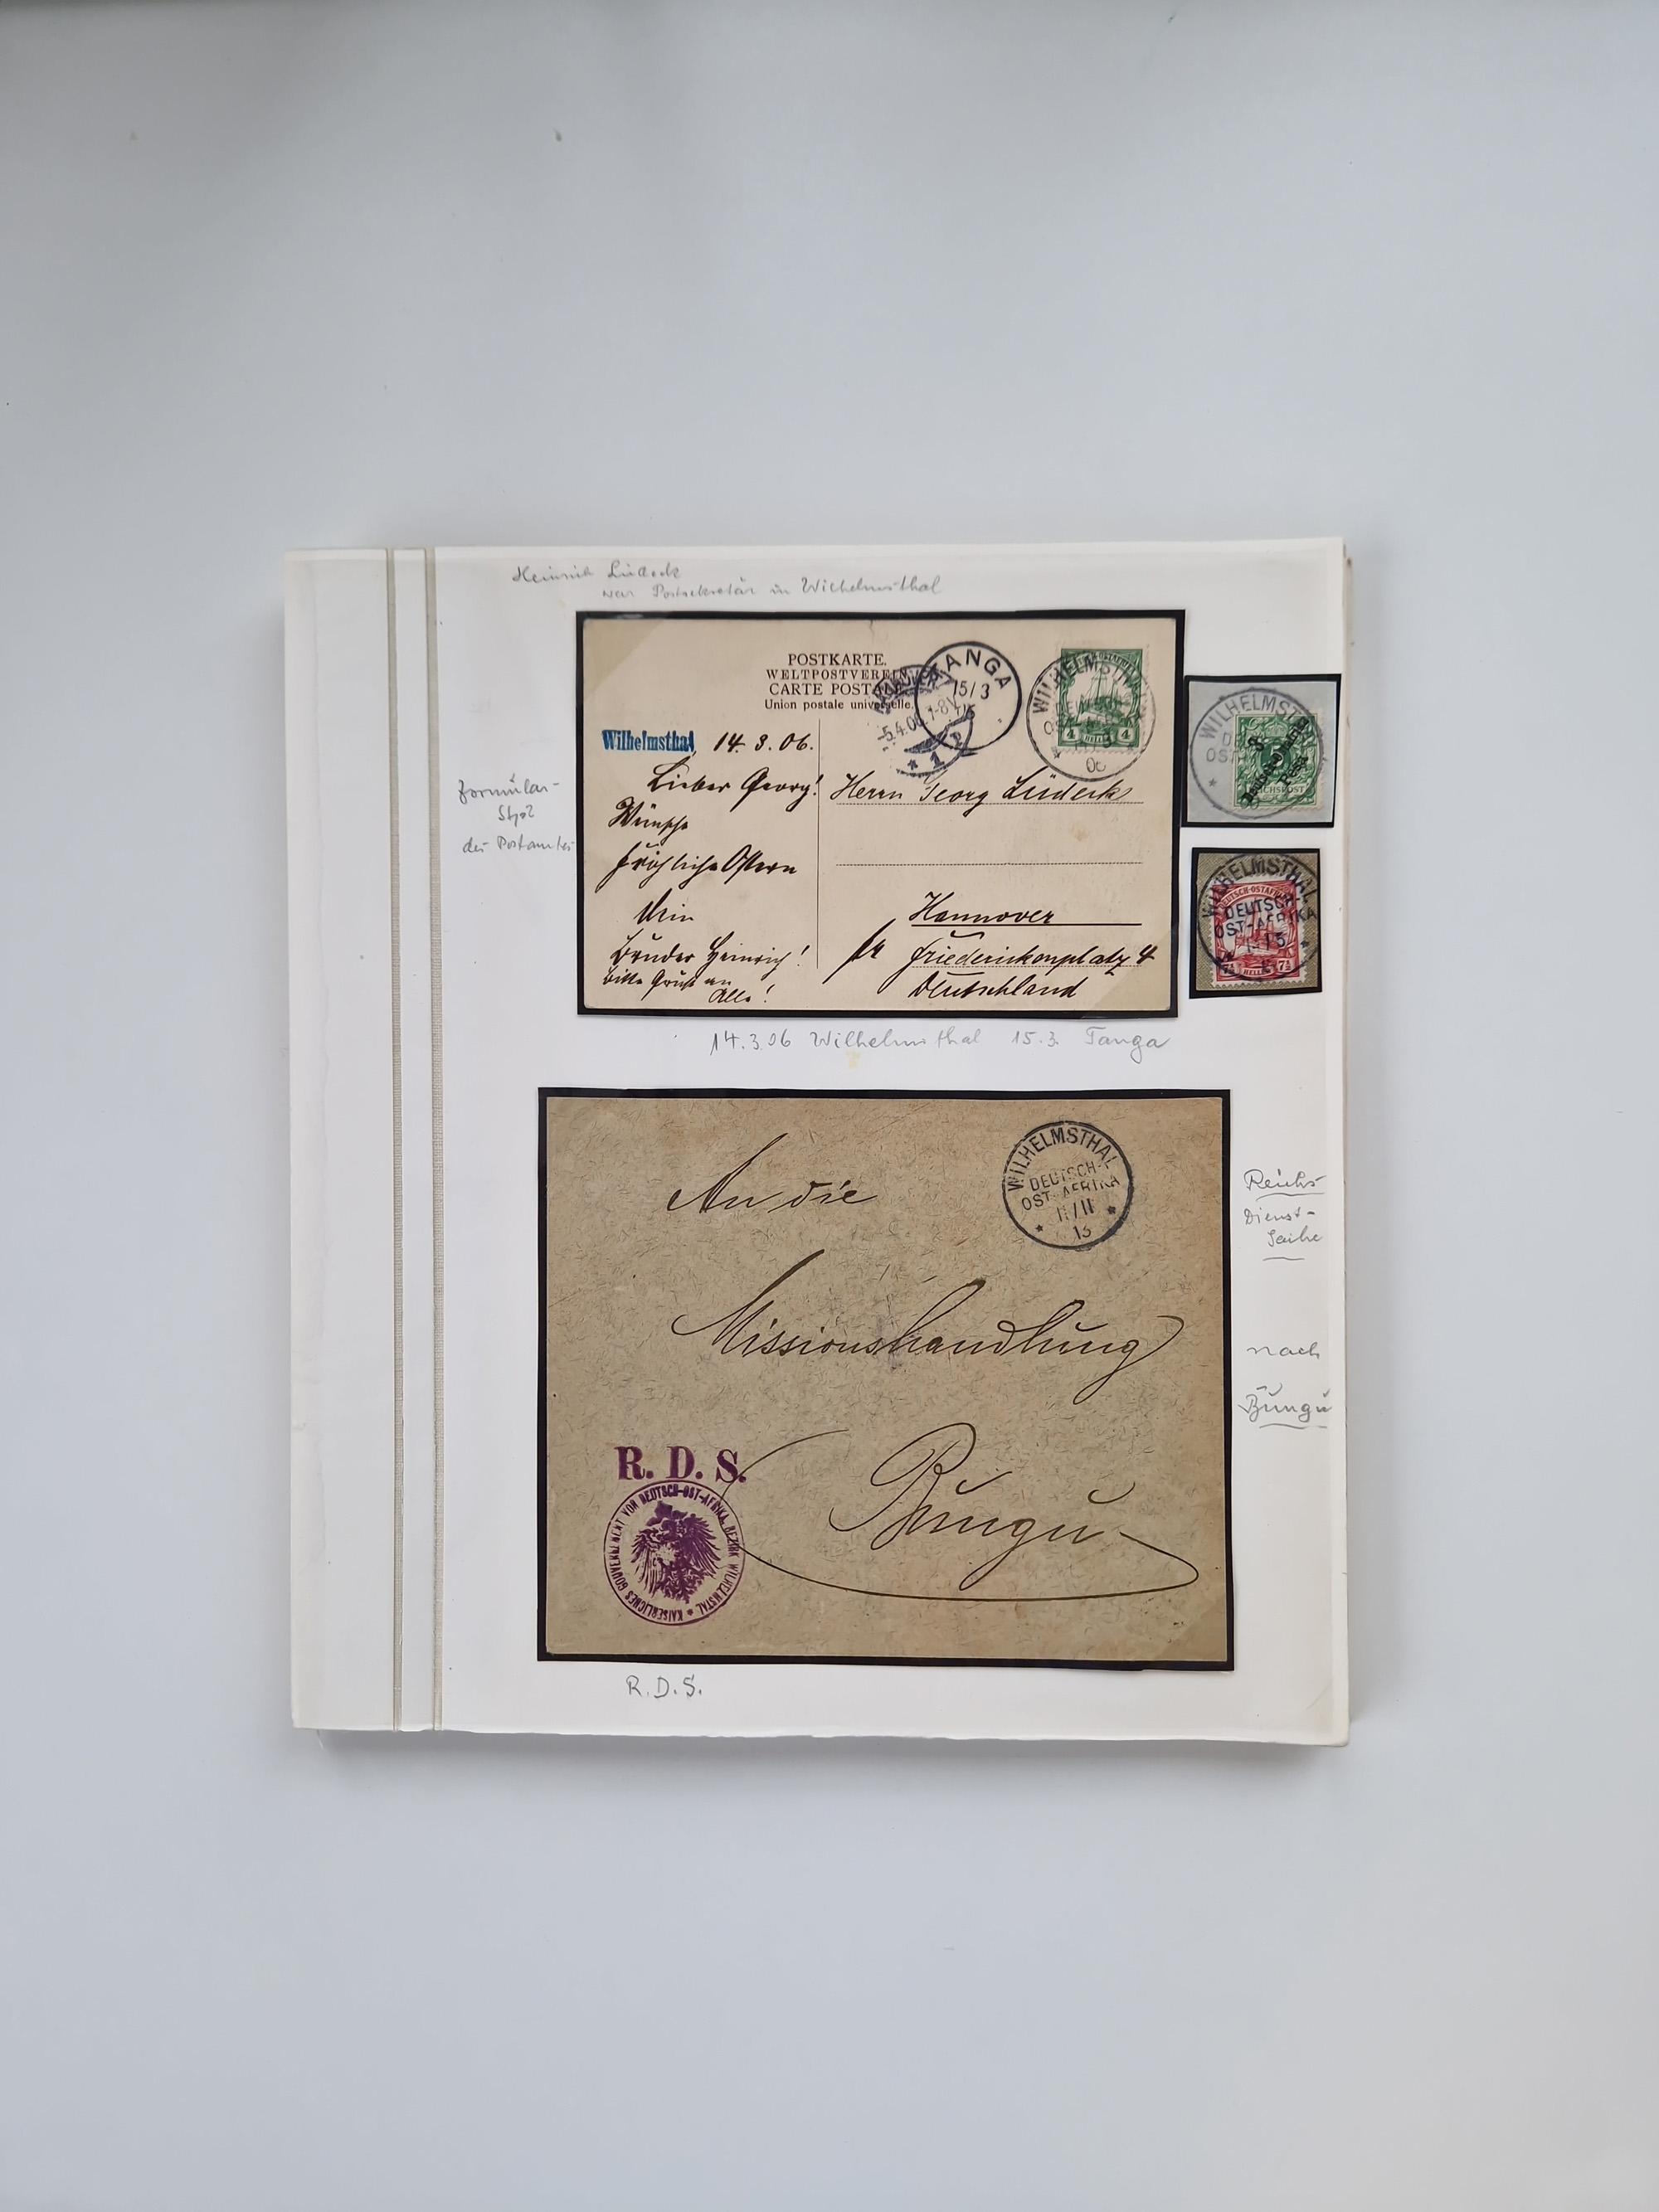 Heinrich Lüdeck
war Postsekretär in Wilhelmsthal
POSTKARTE.
WELTPOSTVEREIN.
CARTE POSTALE
Union postale universelle.
HANNOVER
-5.4.06. 7-8V.
* 1 p
TANGA
15/3
WILHELMSTHAL
DEUTSCH-
OST-AFRIKA
06
4 4
Wilhelmsthal, 14. 3. 06.
Lieber Georg!
Wünsche
fröhliche Ostern
Dein
Bruder Heinrich!
bitte Gruß an
Alle!
Herrn Georg Lüdeck
Hannover
Friederikenplatz 4
Deutschland
Formular-
Stpl
des Postamtes
WILHELMSTHAL
OST
3
Deutsch-Ostafrika
REICHSPOST
WILHELMSTHAL
DEUTSCH-
OST-AFRIKA
DEUTSCH-OSTAFRIKA
7½ HELLER 7½
14.3.06 Wilhelmsthal 15.3. Tanga
WILHELMSTHAL
DEUTSCH-
OST-AFRIKA
11/11
* 13 *
An die
Missionshandlung
Bungu
R. D. S.
KAISERLICHES GOUVERNEMENT VON DEUTSCH-OST-AFRIKA. BEZIRK WILHELMSTAL *
Reichs-
Dienst-
Sache
nach
Bungu
R.D.S.